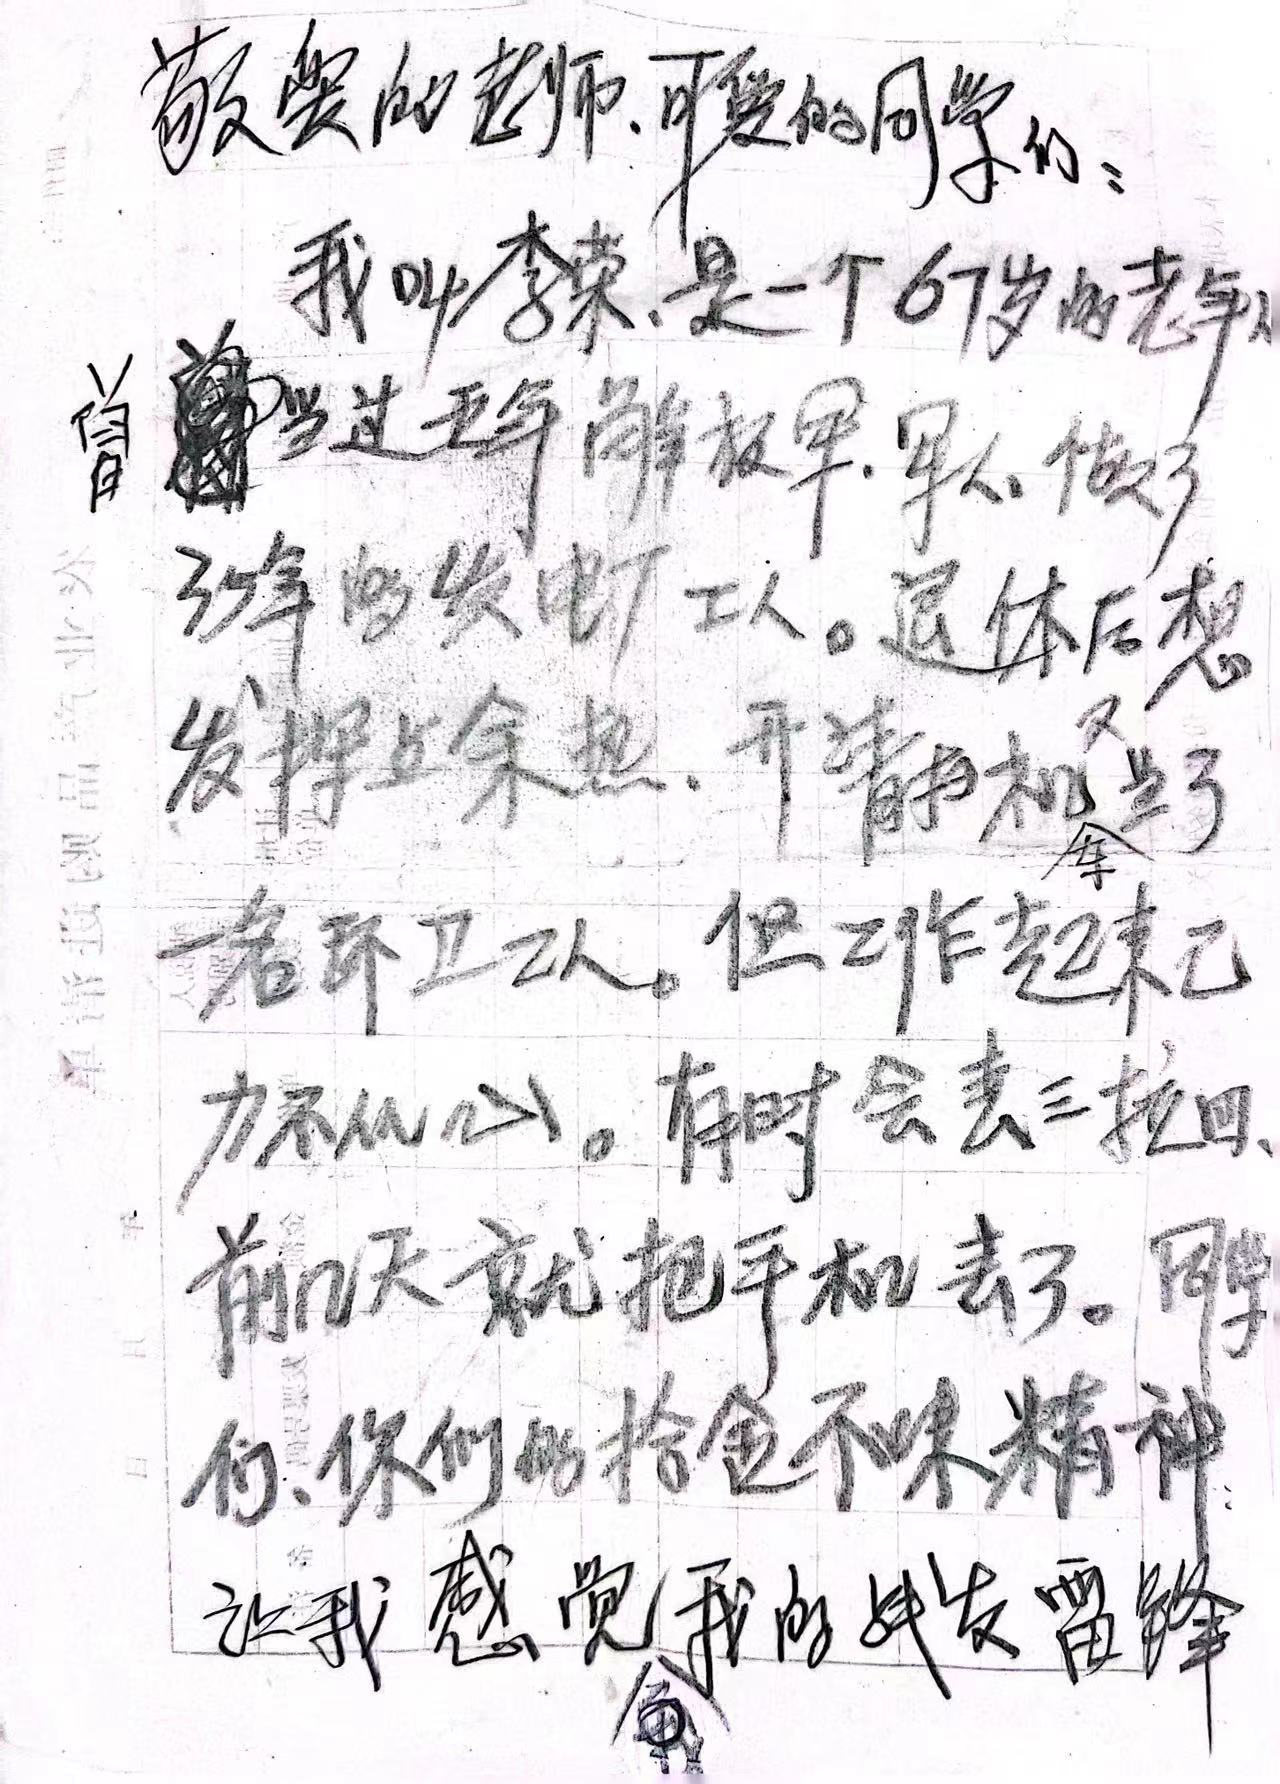 敬爱的老师、可爱的同学们：
我叫李荣、是一个67岁的老年人
曾当过五年解放军、军人、做了
35年的发电厂工人。退休后想
发挥点余热、开清扫机又当了
一名环卫工人。但工作起来已
力不从心。有时会丢三拉四、
前几天就把手机丢了。同学
们、你们的拾金不昧精神
让我感觉我的战友雷锋